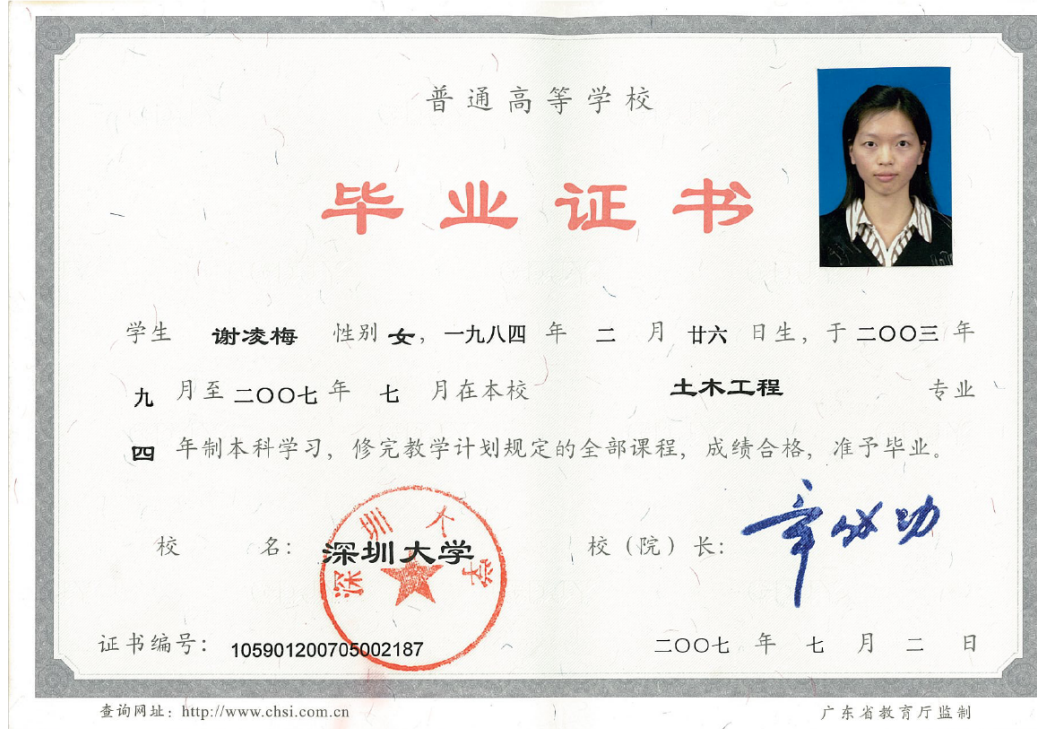 普通高等学校
毕业证书
学生 谢凌梅 性别 女，一九八四 年 二 月 廿六 日生，于 二〇〇三 年
九 月至 二〇〇七 年 七 月在本校 土木工程 专业
四 年制本科学习，修完教学计划规定的全部课程，成绩合格，准予毕业。
深圳大学
校 名：深圳大学 校（院）长：章必功
证书编号：105901200705002187 二〇〇七 年 七 月 二 日
查询网址：http://www.chsi.com.cn 广东省教育厅监制